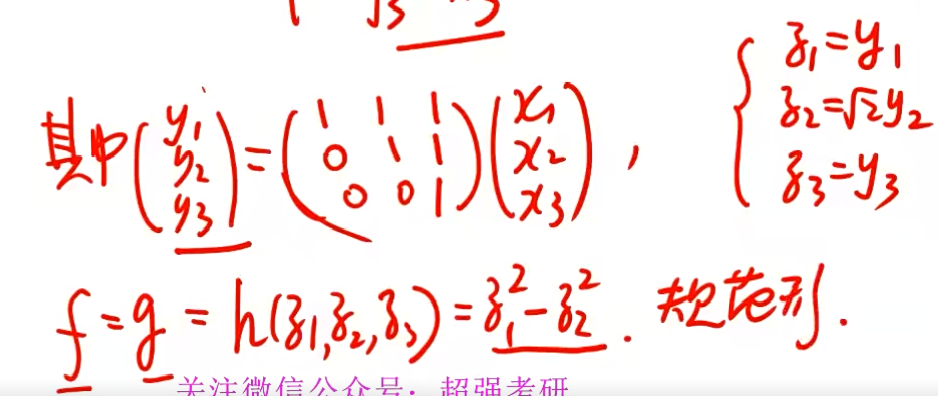 其中 (y₁ y₂ y₃) = (1 1 1 0 1 1 0 0 1) (x₁ x₂ x₃) ,
{ z₁=y₁
z₂=√2y₂
z₃=y₃
f = g = h(z₁,z₂,z₃) = z₁²-z₂² . 规范形.
关注微信公众号：超强考研